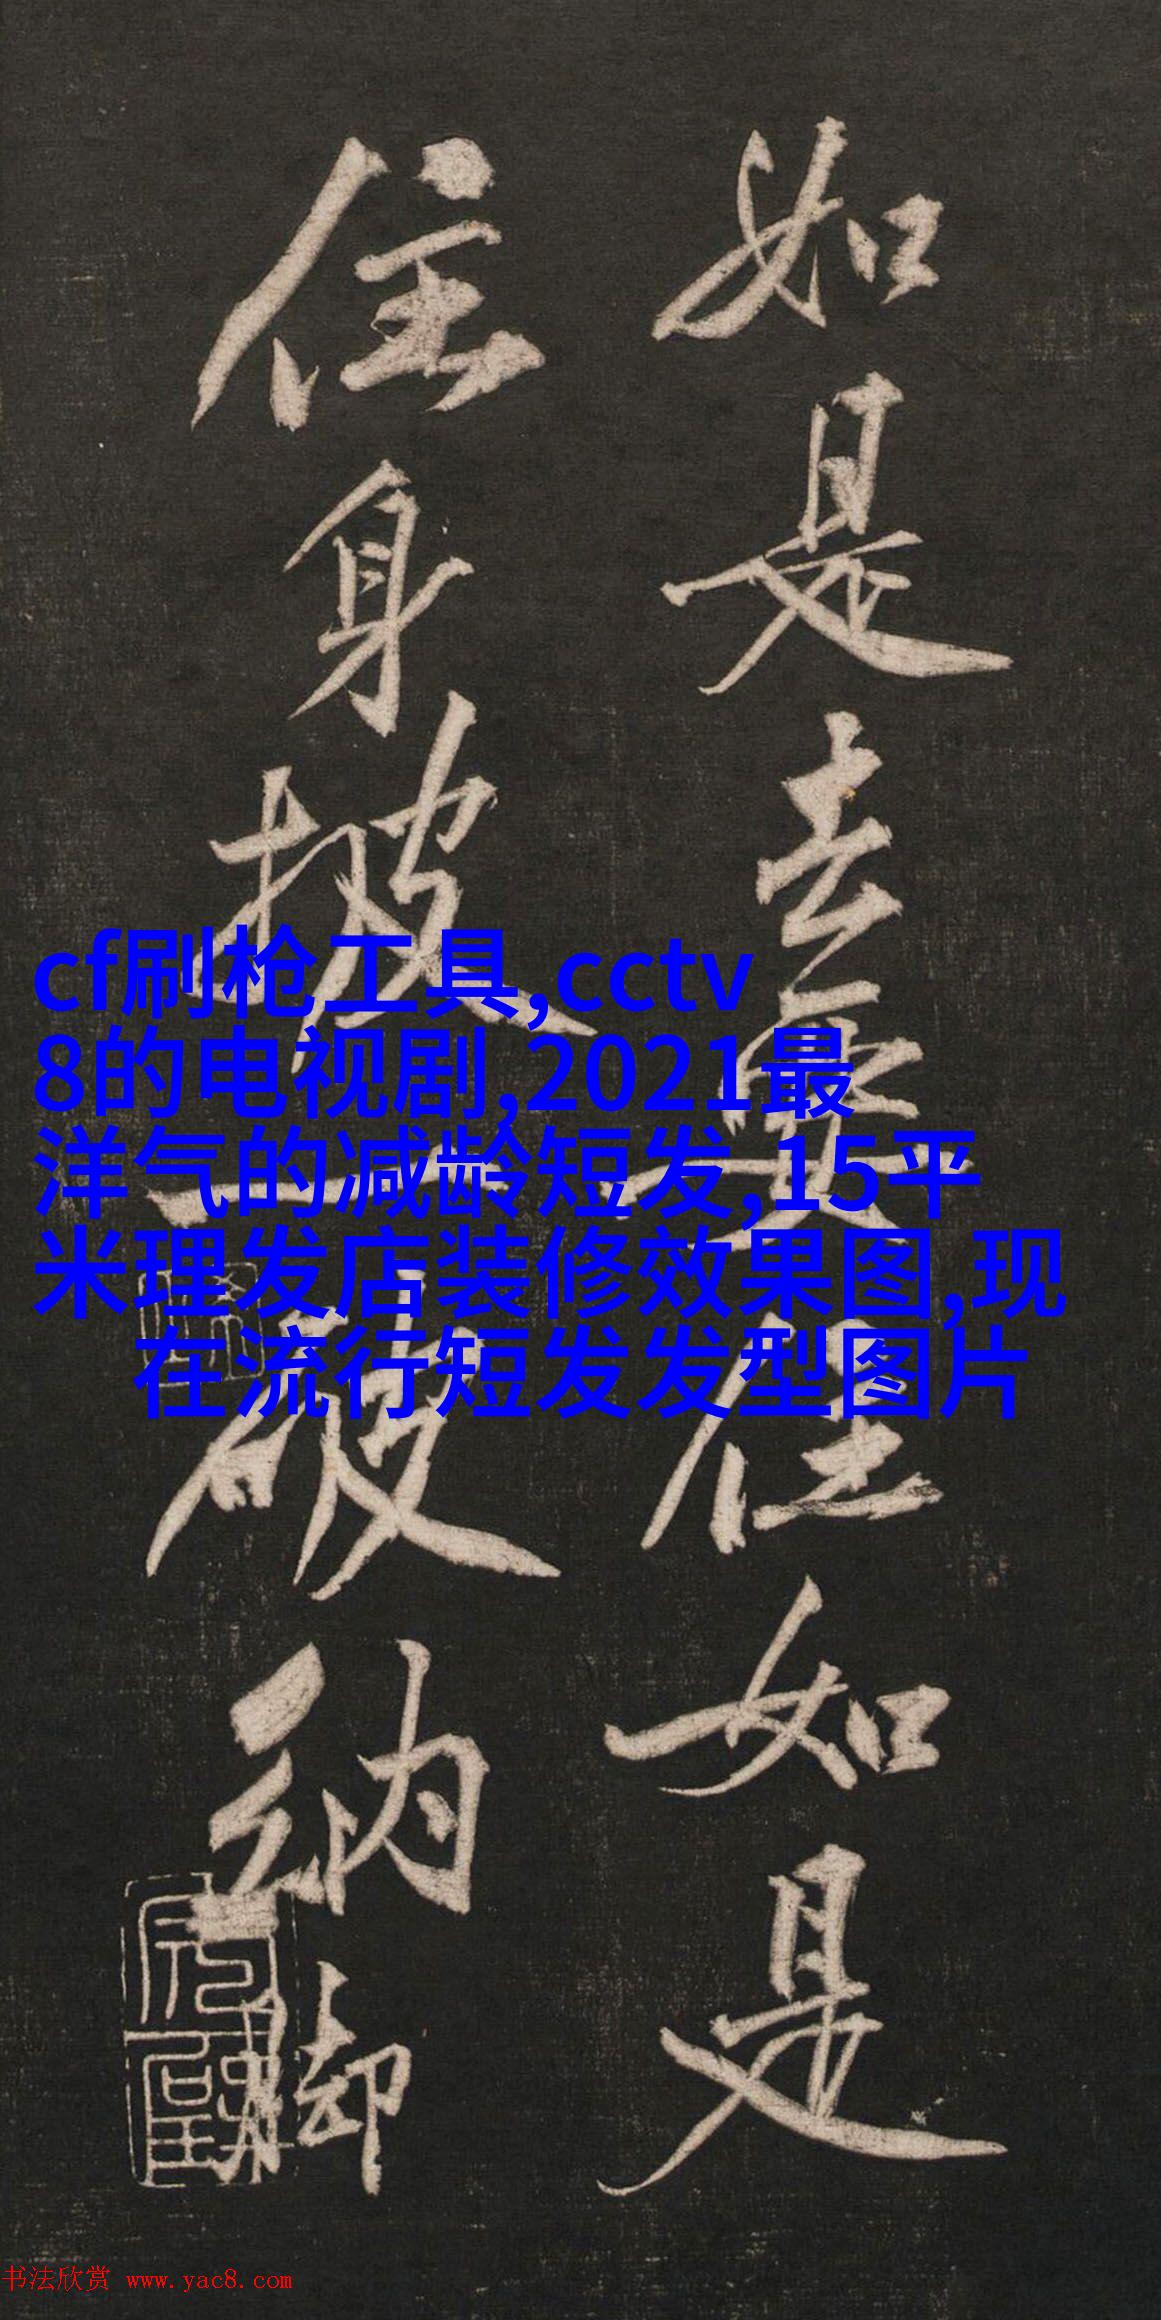 如是去要住如是
住身披一破衲脚
cf刷枪工具,cctv
8的电视剧,2021最
洋气的减龄短发,15平
米理发店装修效果图,现
在流行短发发型图片
书法欣赏 www.yac8.com